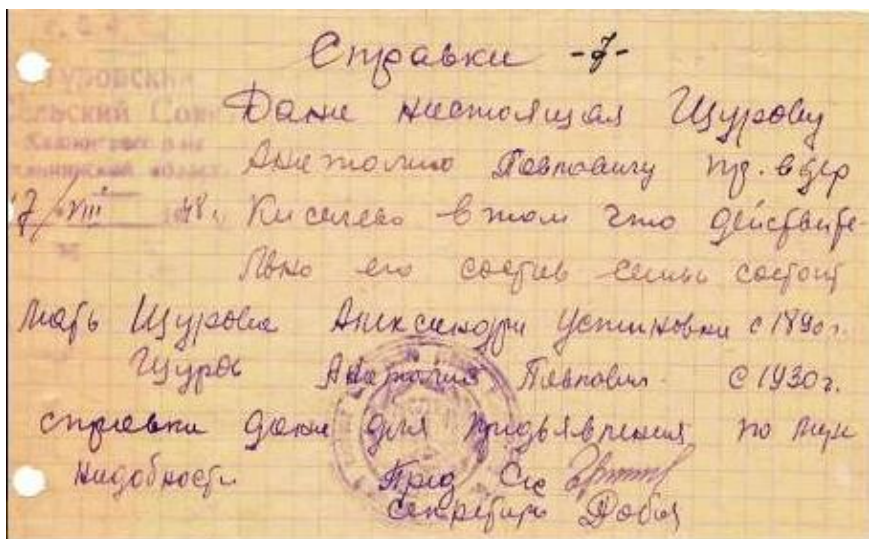 Справка -7-
Сельский Совет
Дана настоящая Щурову
Анатолию Павловичу пр. в дер
17/VIII 48 г. Киселево в том что действите-
льно его состав семьи состоит
мать Щурова Александра Устиновна с 1890 г.
Щуров Анатолий Павлович с 1930 г.
справка дана для предъявления по мере
надобности Пред С/с
секретарь